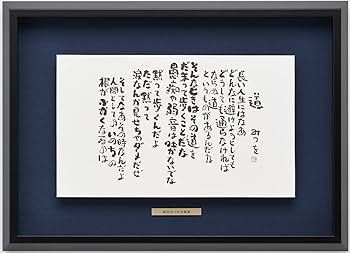 道 みつを
長い人生にはなあ
どんなに避けようとしても
どうしても通らなければ
ならぬ道
というものがあるんだな
そんなときはその道を
だまって歩くことだな
愚痴や弱音は吐かないでな
黙って歩くんだよ
ただ黙って
涙なんか見せちゃダメだぜ
そしてなあその時なんだよ
人間としてのいのちの
根がふかくなるのは